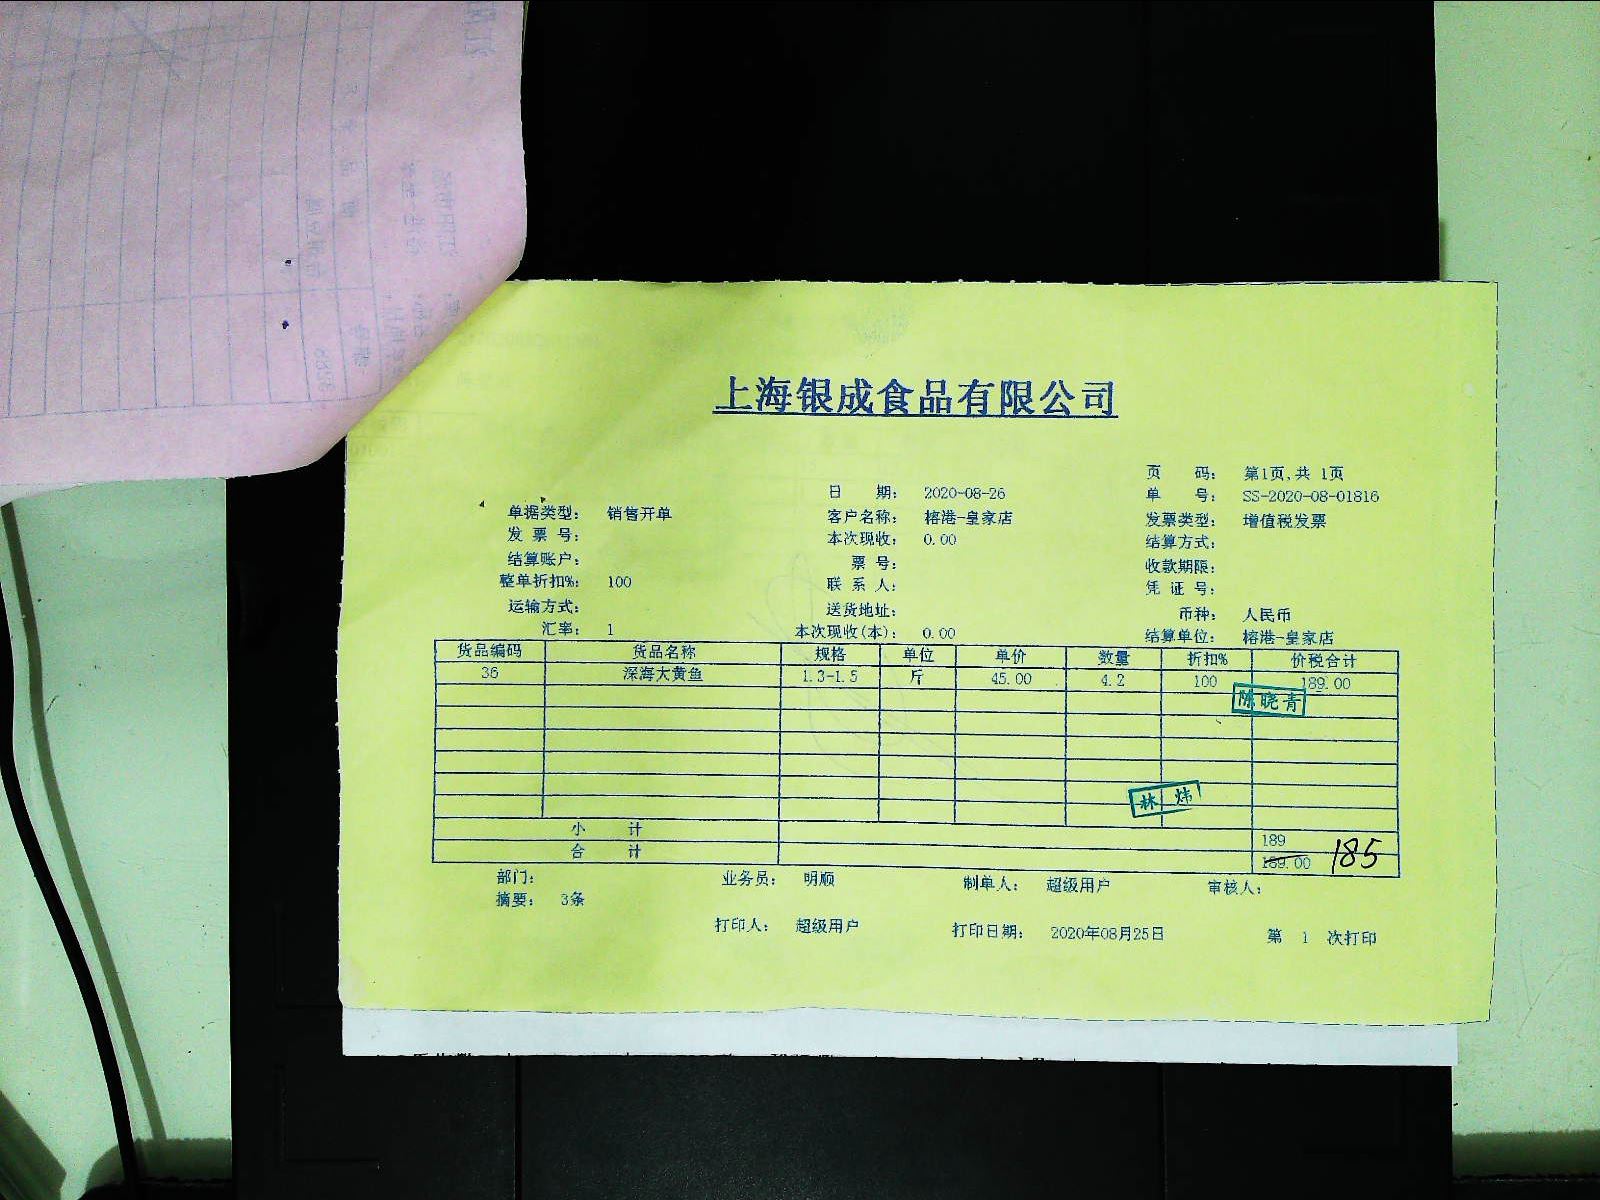 上海银成食品有限公司
页 码： 第1页,共 1页
日 期： 2020-08-26 单 号： SS-2020-08-01816
单据类型： 销售开单 客户名称： 榕港-皇家店 发票类型： 增值税发票
发 票 号： 本次现收： 0.00 结算方式：
结算账户： 票 号： 收款期限：
整单折扣%： 100 联 系 人： 凭 证 号：
运输方式： 送货地址： 币种： 人民币
汇率： 1 本次现收(本)： 0.00 结算单位： 榕港-皇家店
货品编码 货品名称 规格 单位 单价 数量 折扣% 价税合计
36 深海大黄鱼 1.3-1.5 斤 45.00 4.2 100 189.00
陈晓青
林炜
小 计 189
合 计 189.00 185
部门： 业务员： 明顺 制单人： 超级用户 审核人：
摘要： 3条
打印人： 超级用户 打印日期： 2020年08月25日 第 1 次打印